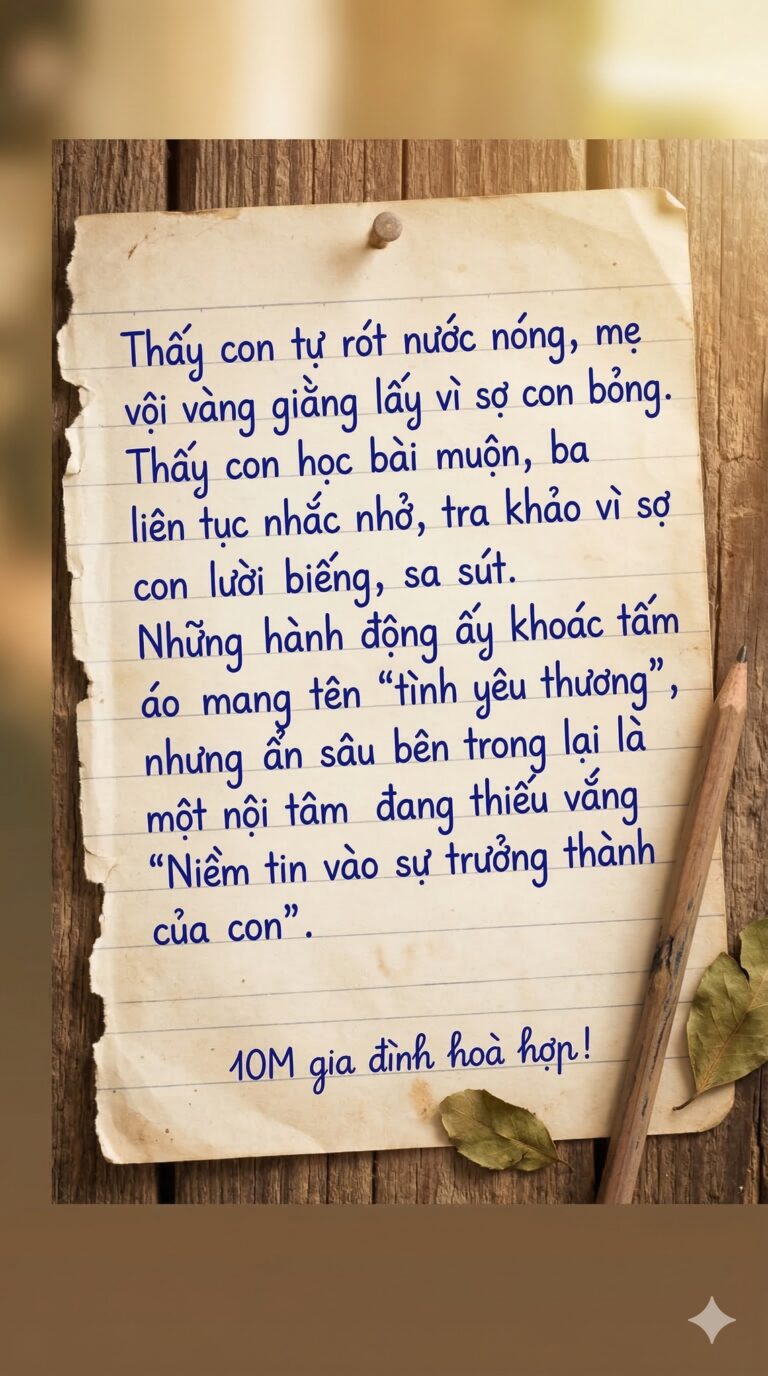 Thấy con tự rót nước nóng, mẹ
vội vàng giằng lấy vì sợ con bỏng.
Thấy con học bài muộn, ba
liên tục nhắc nhở, tra khảo vì sợ
con lười biếng, sa sút.
Những hành động ấy khoác tấm
áo mang tên “tình yêu thương”,
nhưng ẩn sâu bên trong lại là
một nội tâm đang thiếu vắng
“Niềm tin vào sự trưởng thành
của con”.
10M gia đình hoà hợp!